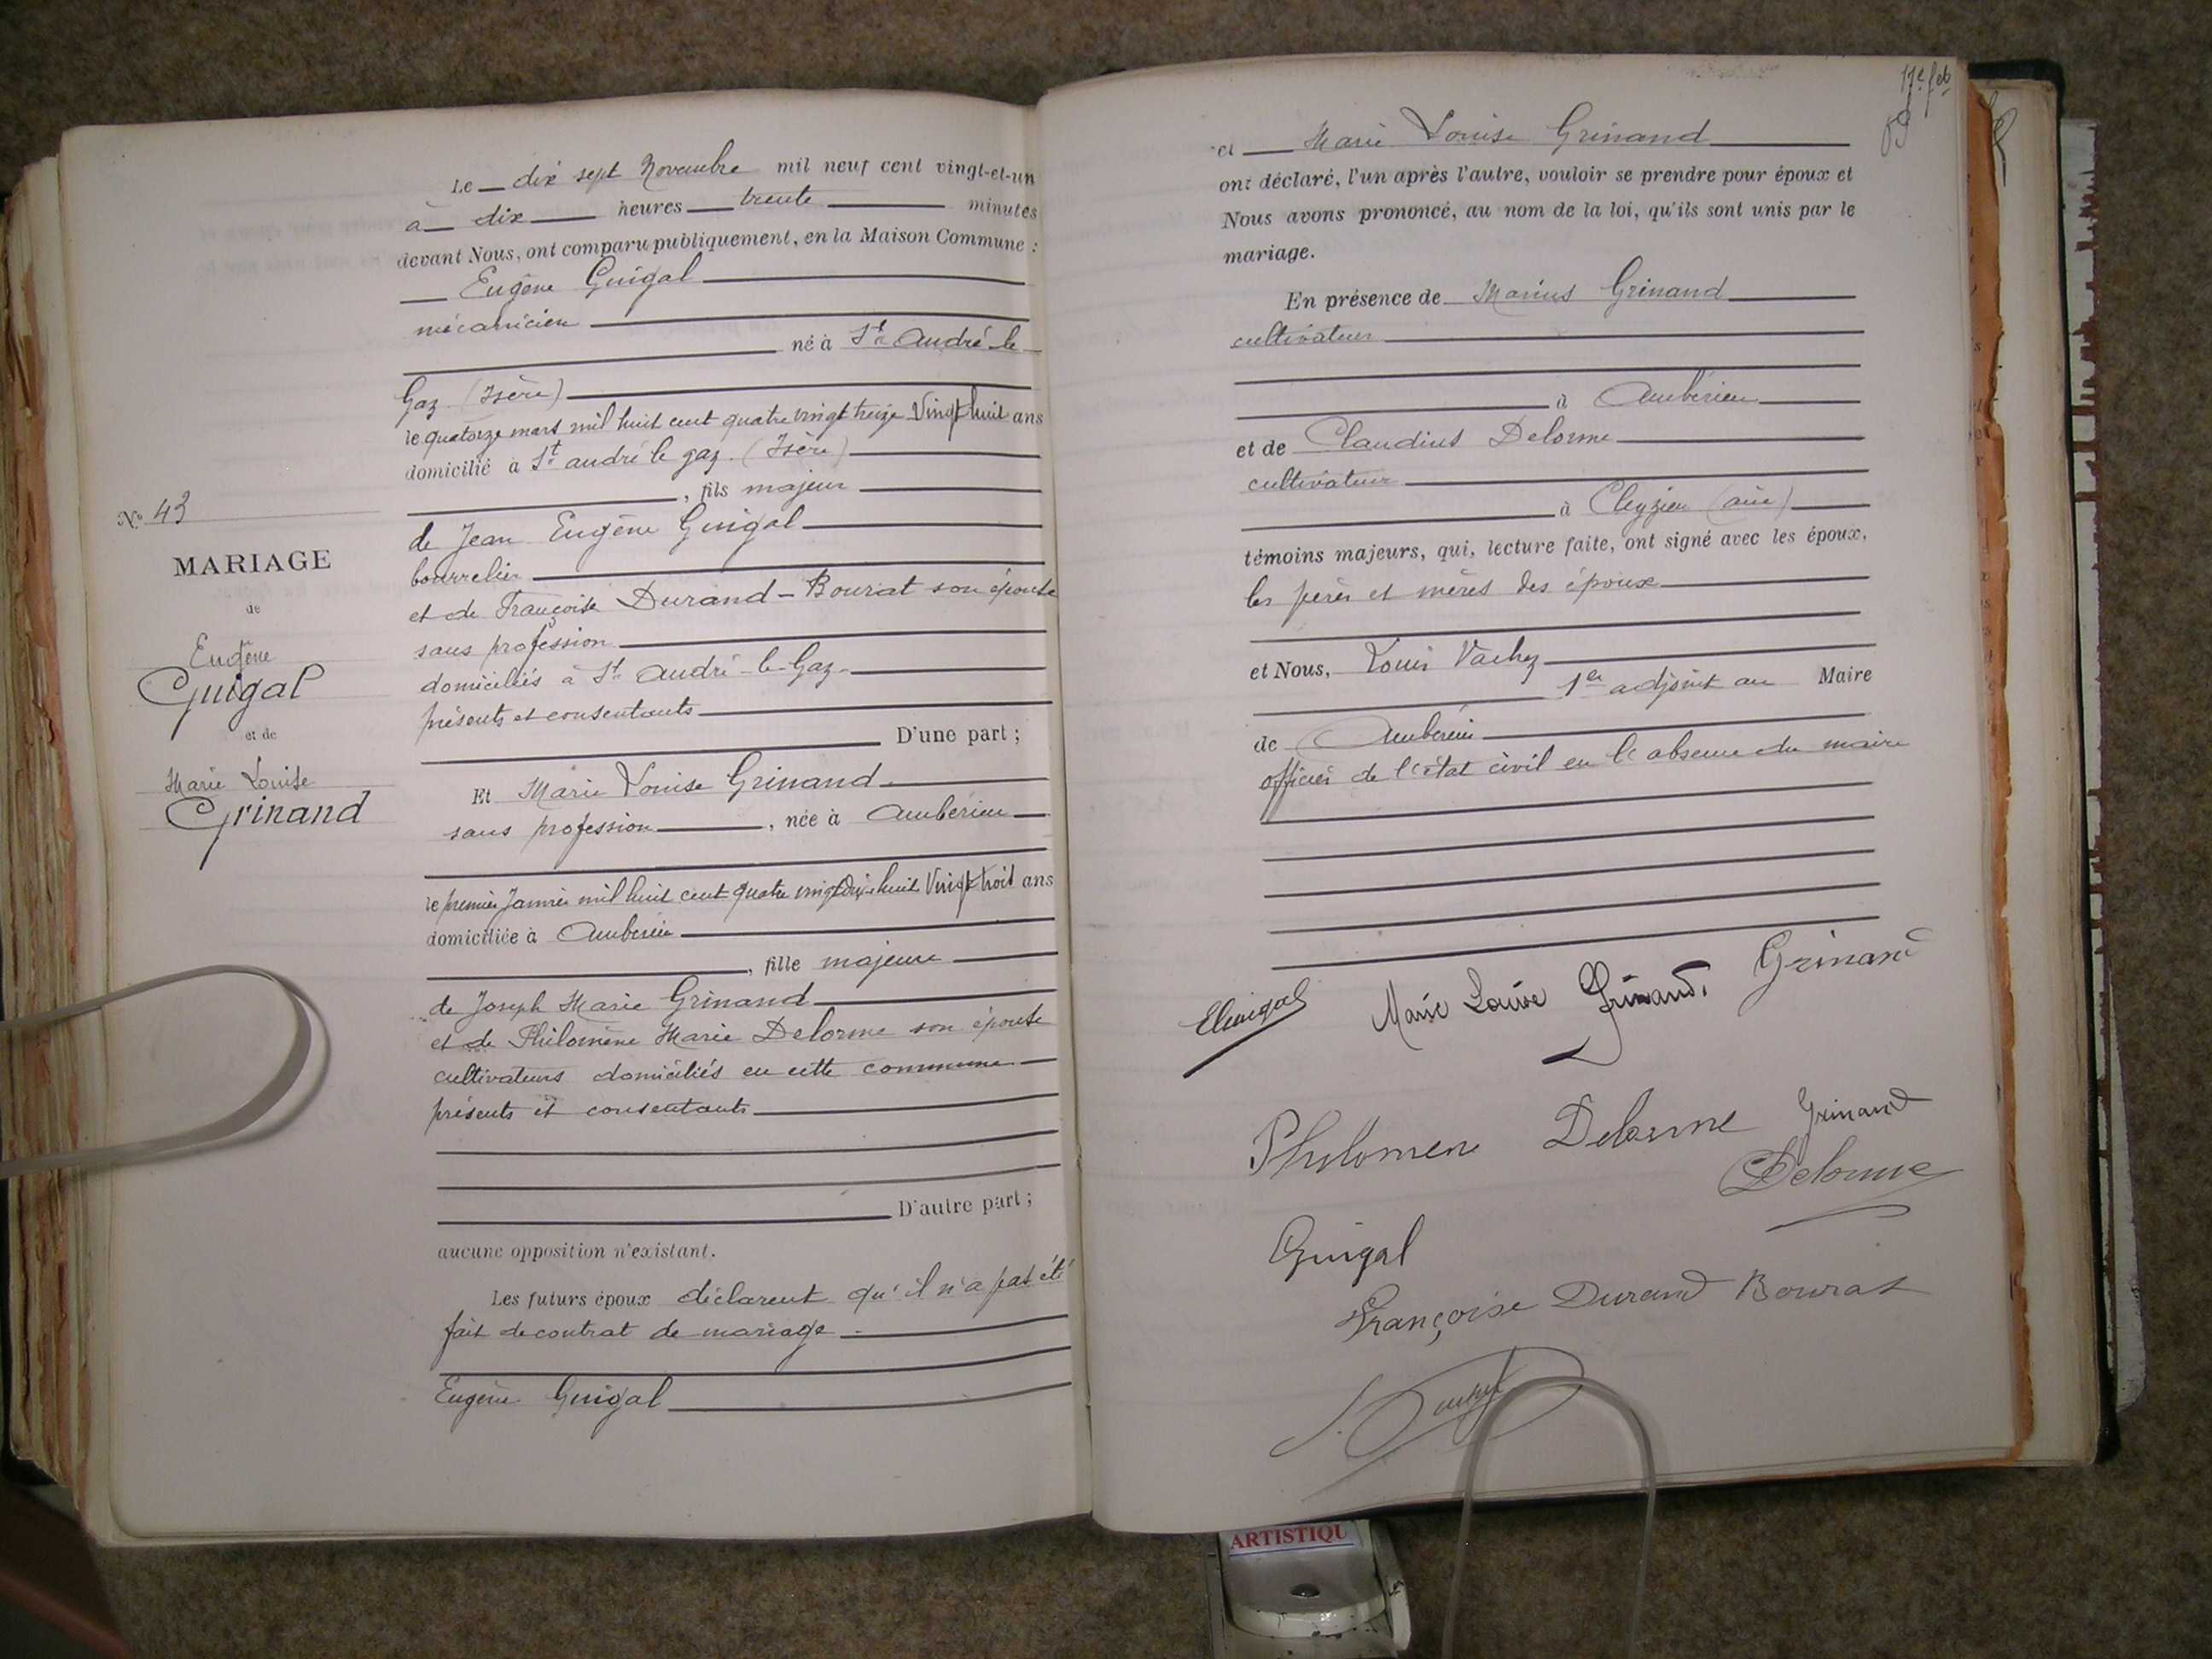 Le dix sept Novembre mil neuf cent vingt-et-un
à dix heures trente minutes
devant Nous, ont comparu publiquement, en la Maison Commune :
Eugène Guigal
mécanicien
né à St André le
Gaz (Isère)
le quatorze mars mil huit cent quatre vingt treize Vingt huit ans
domicilié à St andré le gaz. (Isère)
, fils majeur
de Jean Eugène Guigal
bourrelier
et de Françoise Durand - Bourat son épouse
sans profession
domiciliés à St André-le-Gaz
présents et consentants
D'une part ;
Et Marie Louise Grinand
sans profession, née à Ambérieu
le premier Janvier mil huit cent quatre vingt dix huit Vingt trois ans
domiciliée à Ambérieu
, fille majeure
de Joseph Marie Grinand
et de Philomène Marie Delorme son épouse
cultivateurs domiciliés en cette commune
présents et consentants
D'autre part ;
aucune opposition n'existant.
Les futurs époux déclarent qu'il n'a pas été
fait de contrat de mariage
Eugène Guigal
N° 43
MARIAGE
de
Eugène
Guigal
et de
Marie Louise
Grinand
69
et Marie Louise Grinand
ont déclaré, l'un après l'autre, vouloir se prendre pour époux et
Nous avons prononcé, au nom de la loi, qu'ils sont unis par le
mariage.
En présence de Marius Grinand
cultivateur
à Ambérieu
et de Claudius Delorme
cultivateur
à Cleyzieu (ain)
témoins majeurs, qui, lecture faite, ont signé avec les époux,
les pères et mères des époux
et Nous, Louis Vachez
1er adjoint au Maire
de Ambérieu
officier de l'état civil en l'absence du maire
EGuigal
Marie Louise Grinand.
Grinand
Philomene Delorme
Grinand
Delorme
Guigal
Françoise Durand Bourat
ARTISTIQU